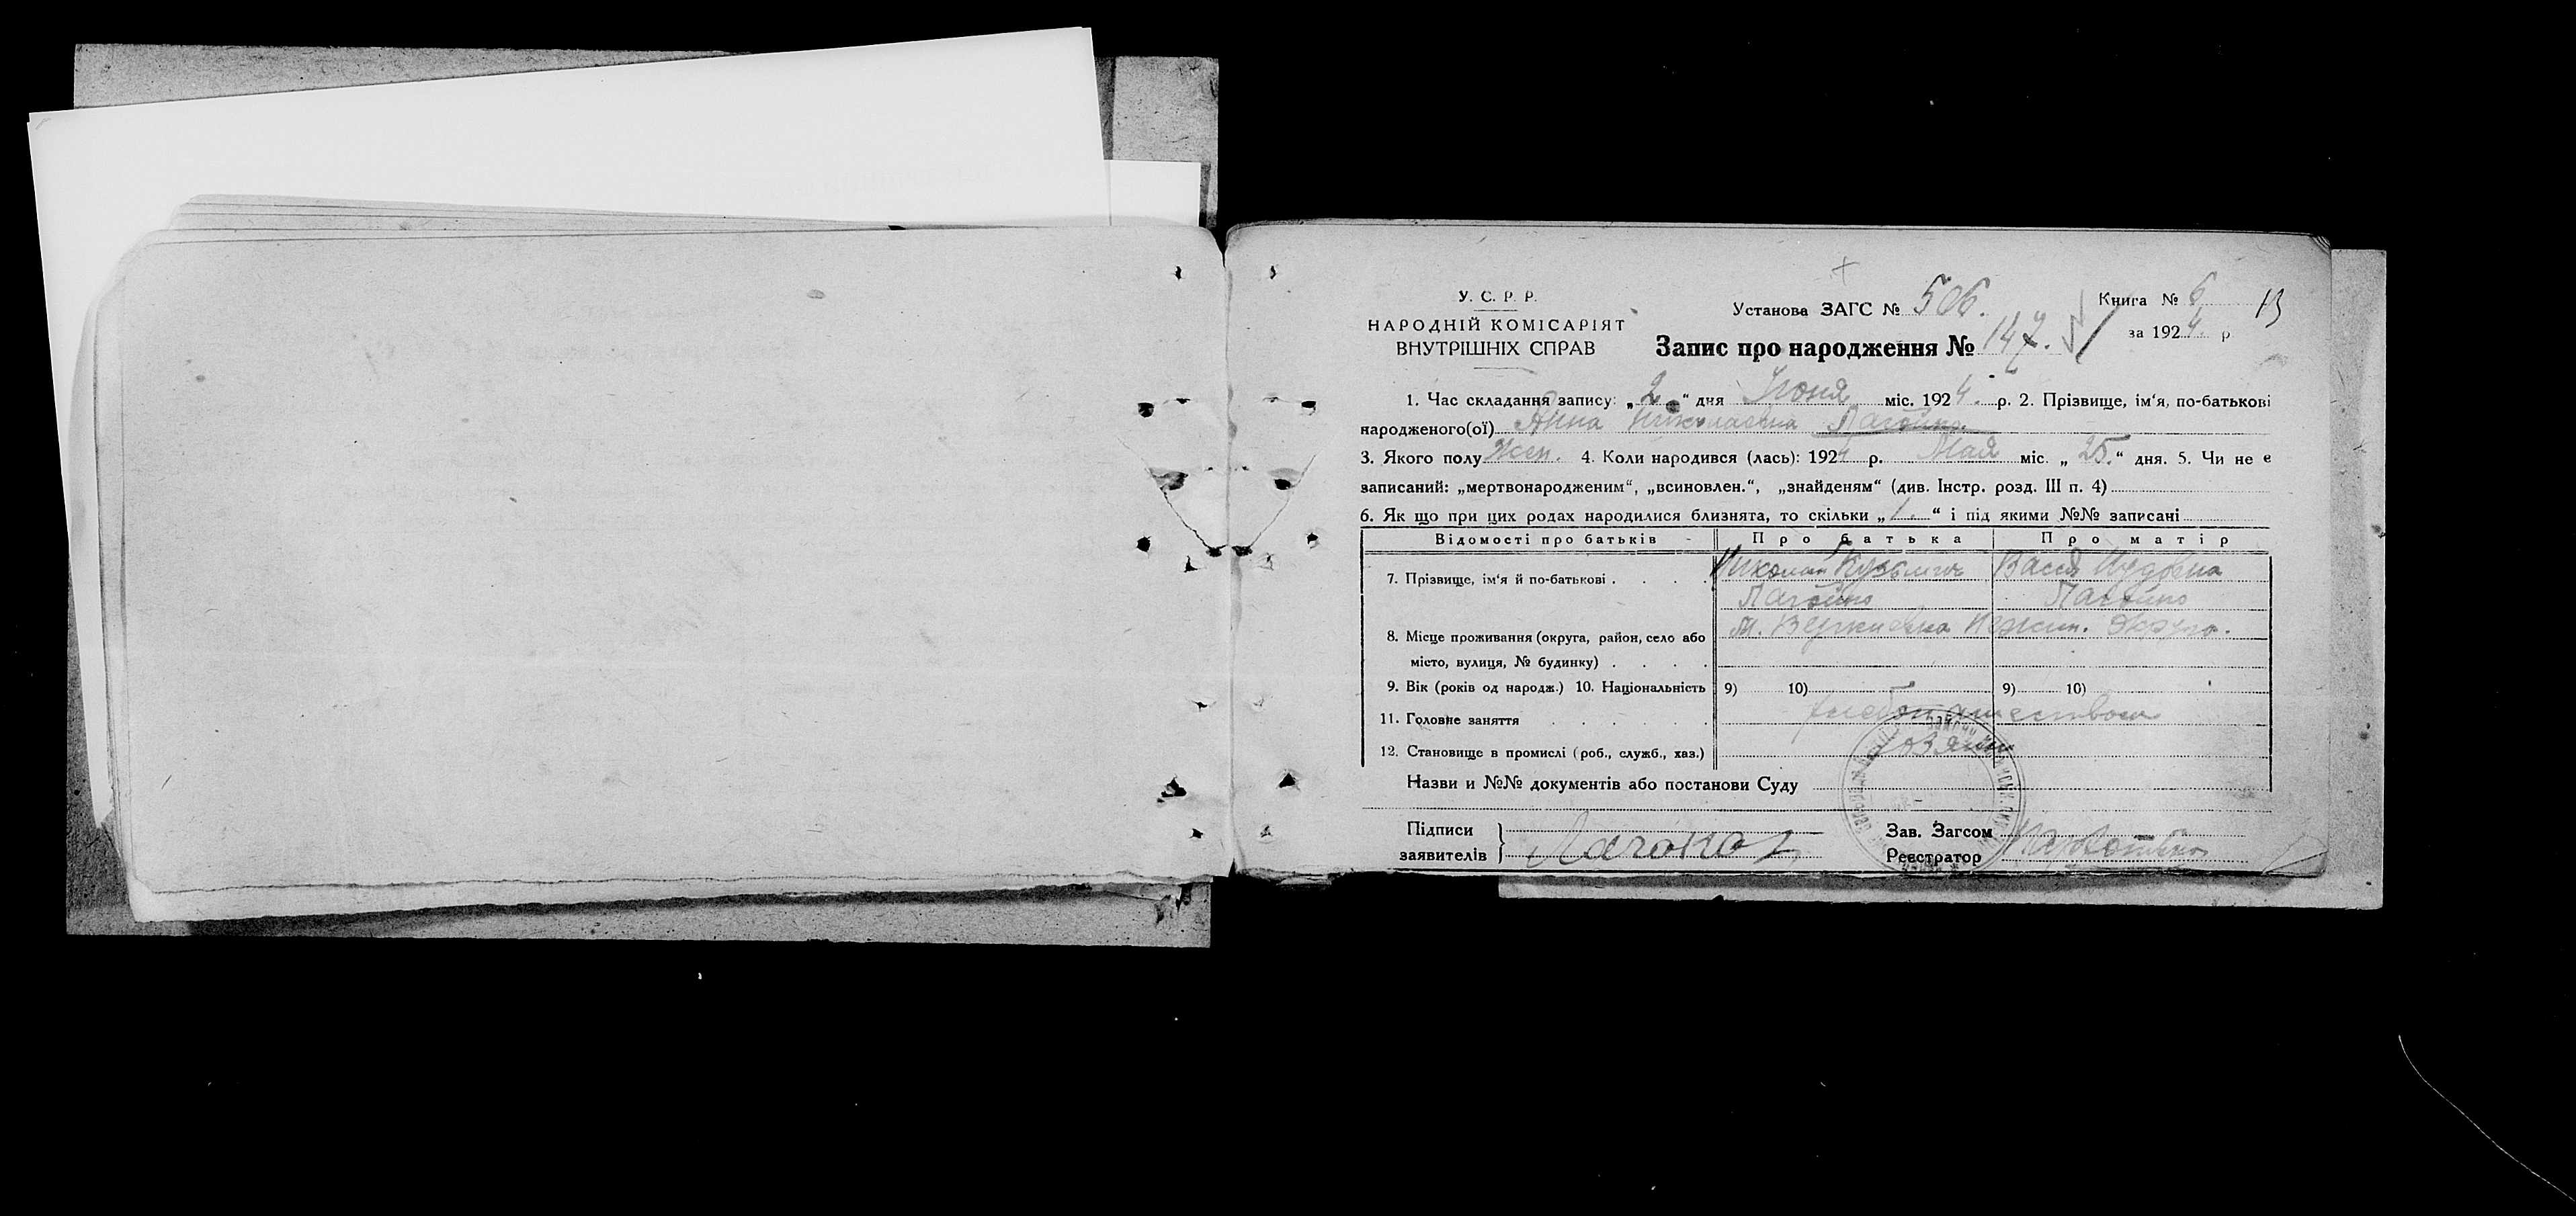 У. С. Р. Р.
НАРОДНІЙ КОМІСАРІЯТ
ВНУТРІШНІХ СПРАВ
Установа ЗАГС № 506.
Запис про народження № 147.
Книга № 6
13
за 1924 р
1. Час складання запису: „2“ дня Июня міс. 1924. р. 2. Прізвище, ім'я, по-батькові
народженого(ої) Анна Николаевна
3. Якого полу Жен. 4. Коли народився (лась): 1924 р. Мая міс. „25.“ дня. 5. Чи не є
записаний: „мертвонародженим“, „всиновлен.“, „знайденям“ (див. Інстр. розд. III п. 4)
6. Як що при цих родах народилися близнята, то скільки „1.“ і під якими №№ записані
Відомості про батьків Про батька Про матір
7. Прізвище, ім'я й по-батькові . . . . Николай Кузьмич
8. Місце проживання (округа, район, село або М. Веркиевка Нежин. Округа.
місто, вулиця, № будинку) . . . .
9. Вік (років од народж.) 10. Національність 9) 10) 9) 10)
11. Головне заняття . . . . . .
12. Становище в промислі (роб., служб., хаз.)
Назви и №№ документів або постанови Суду
Підписи
заявителів
Зав. Загсом
Реєстратор